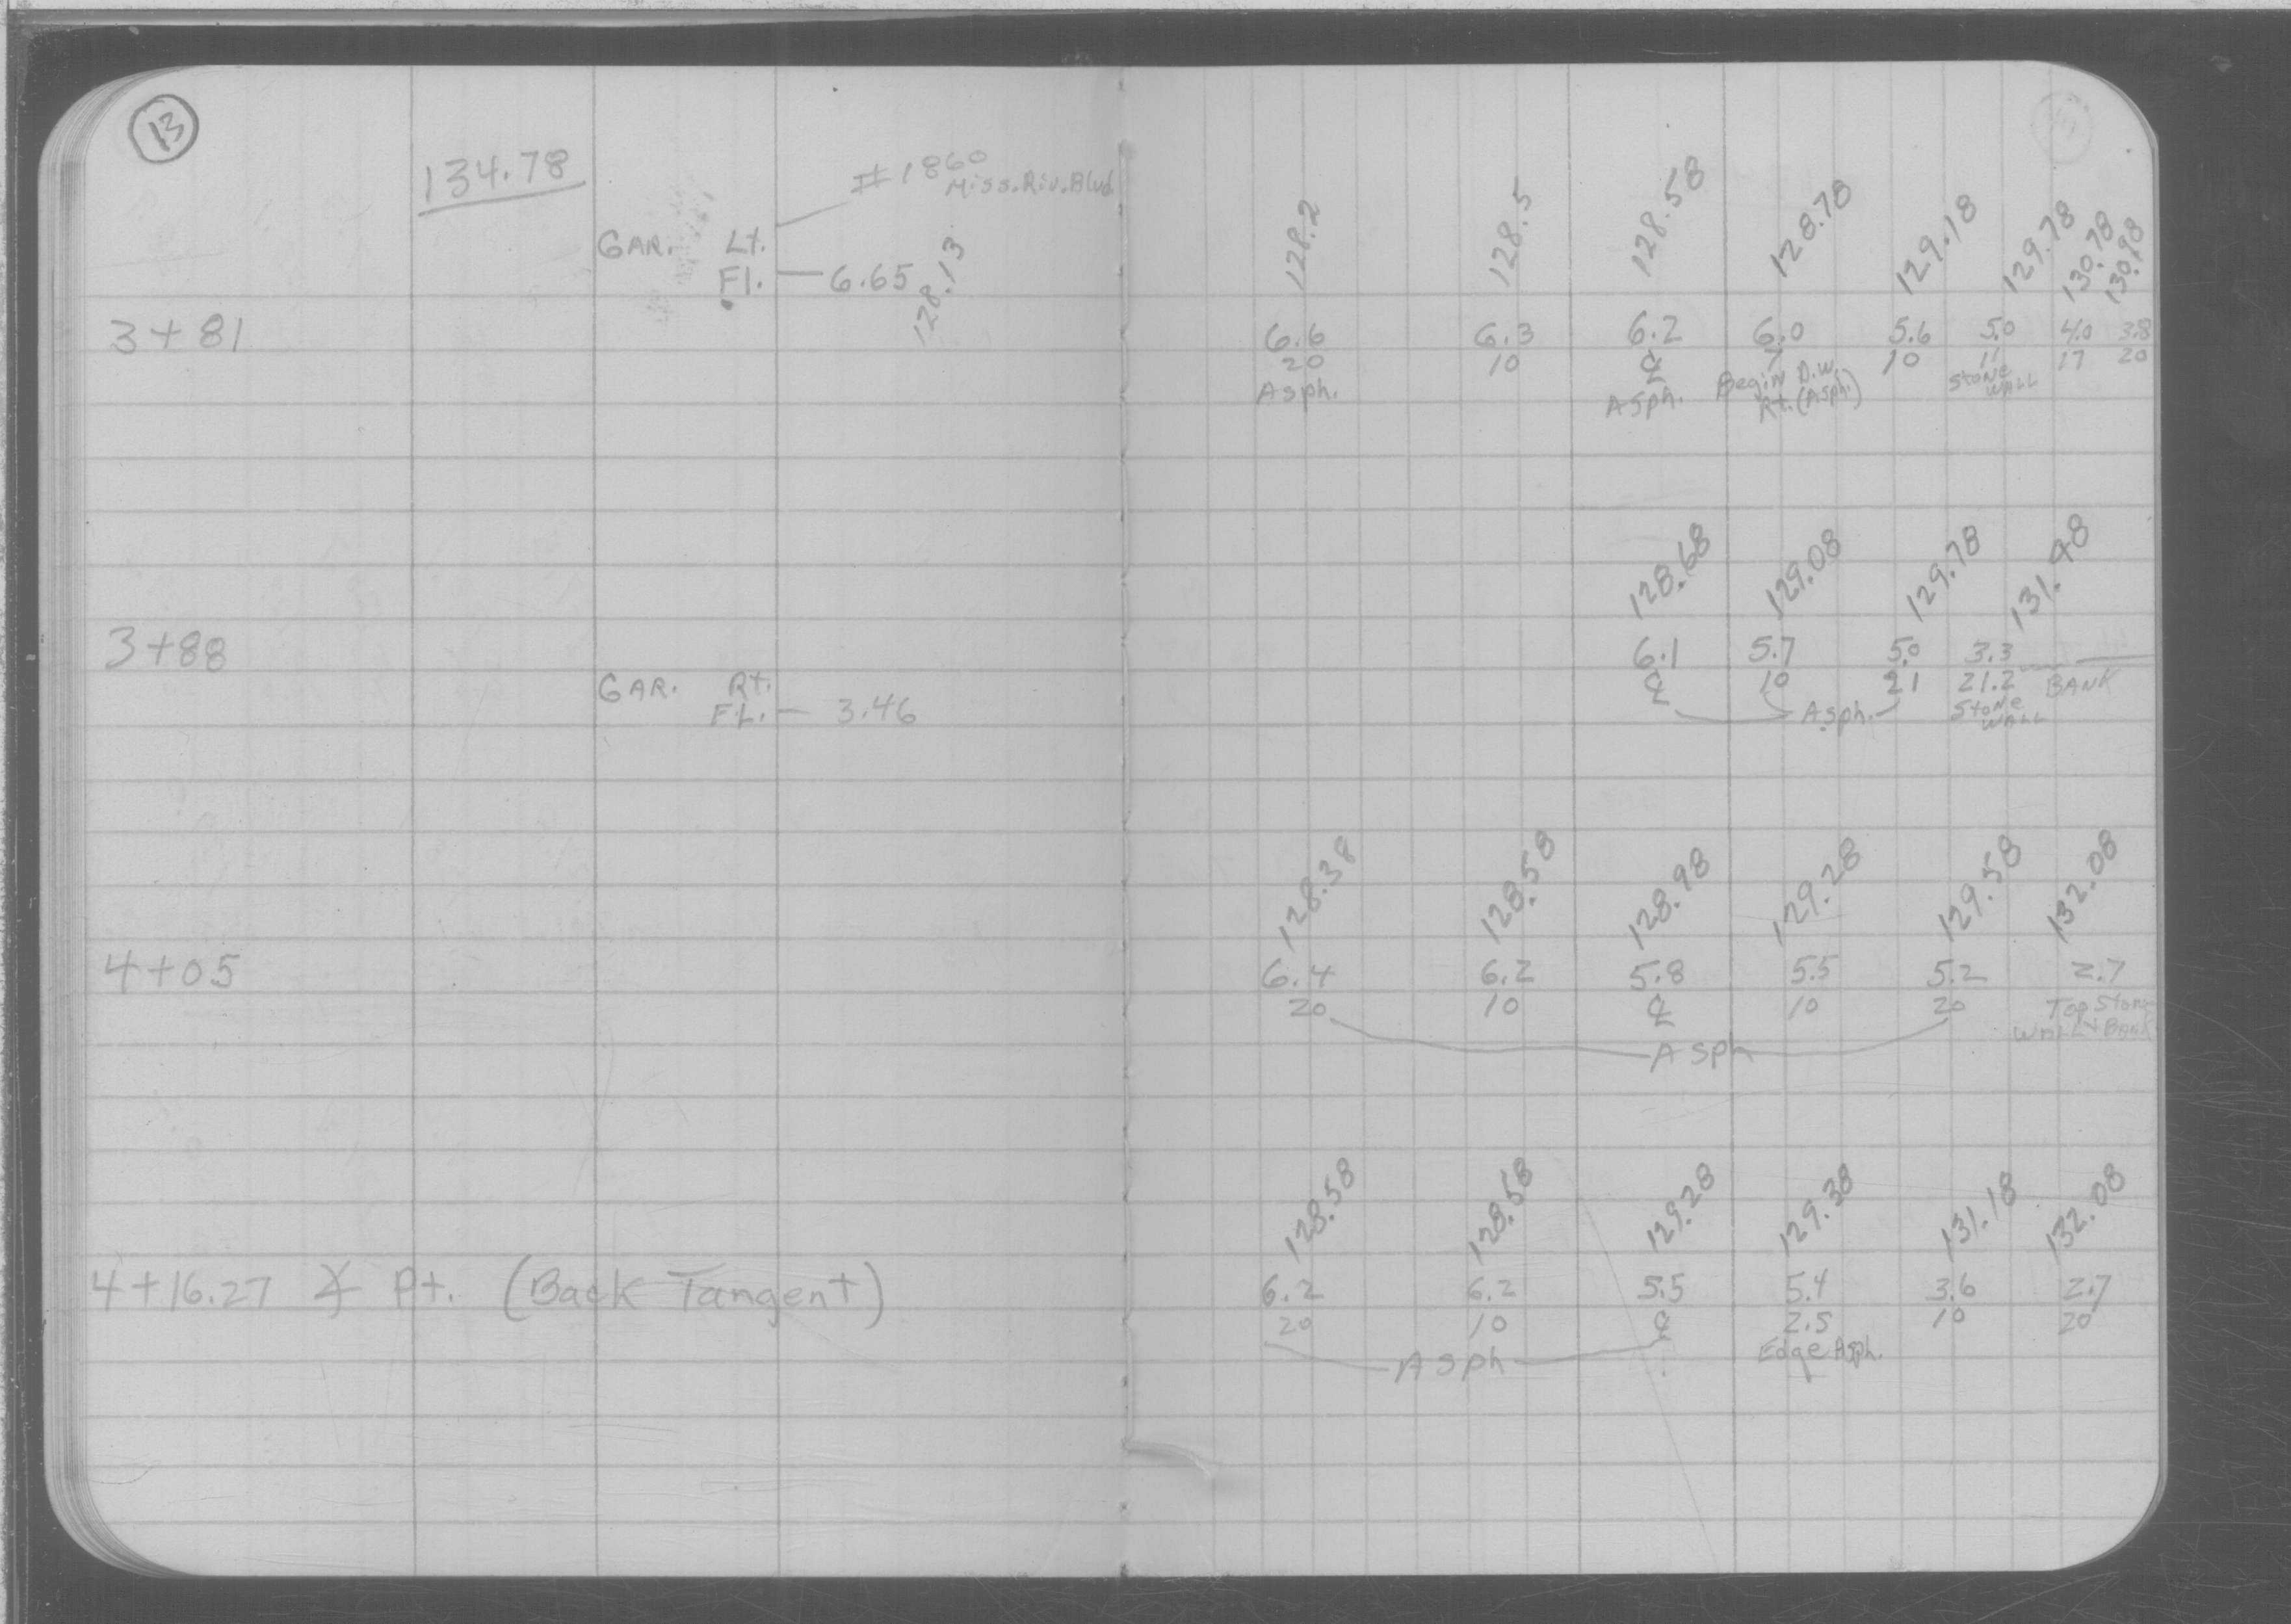 13
134.78
#1860 Miss. Riv. Blvd.
GAR. Lt.
Fl. 6.65 128.13
128.2 128.5 128.58 128.78 129.18 129.78 130.78 130.98
3+81 6.6 6.3 6.2 6.0 5.6 5.0 4.0 3.8
20 10 ℄ 7 10 11 17 20
Asph. Asph. Begin D.W. Rt. (Asph.) Stone WALL
128.68 129.08 129.78 131.48
3+88 6.1 5.7 5.0 3.3
GAR. Rt. ℄ 10 21 21.2 BANK
FL. 3.46 Asph. Stone WALL
128.38 128.58 128.98 129.28 129.58 132.08
4+05 6.4 6.2 5.8 5.5 5.2 2.7
20 10 ℄ 10 20 Top Stone
WALL & BANK
Asph
128.58 128.58 129.28 129.38 131.18 132.08
4+16.27 ∡ Pt. (Back Tangent) 6.2 6.2 5.5 5.4 3.6 2.7
20 10 ℄ 2.5 10 20
Asph Edge Asph.